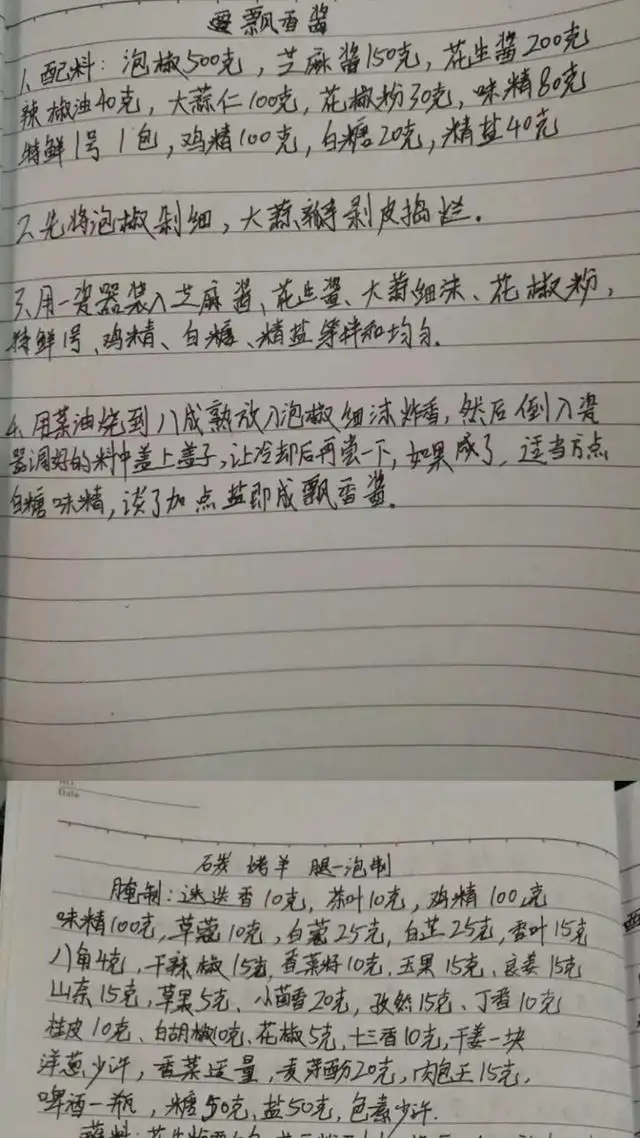 飘香酱
1、配料：泡椒500克，芝麻酱150克，花生酱200克
辣椒油40克，大蒜仁100克，花椒粉30克，味精80克
特鲜1号1包，鸡精100克，白糖20克，精盐40克
2、先将泡椒剁细，大蒜瓣剥皮捣烂。
3、用一瓷器装入芝麻酱、花生酱、大蒜细沫、花椒粉，
特鲜1号、鸡精、白糖、精盐等拌和均匀。
4、用菜油烧到八成熟放入泡椒细沫炸香，然后倒入瓷
器调好的料中盖上盖子，让冷却后再尝一下，如果咸了，适当加点
白糖味精，淡了加点盐即成飘香酱。
Date
碳烤羊腿一泡制
腌制：迷迭香10克，茶叶10克，鸡精100克
味精100克，草蔻10克，白蔻25克，白芷25克，香叶15克
八角4克，干辣椒15克，香菜籽10克，玉果15克、良姜15克
山奈15克，草果5克、小茴香20克，孜然15克、丁香10克
桂皮10克、白胡椒10克、花椒5克，十三香10克，干姜一块
洋葱少许，香菜适量，麦芽酚20克，肉包王15克，
啤酒一瓶，糖50克，盐50克，色素少许.